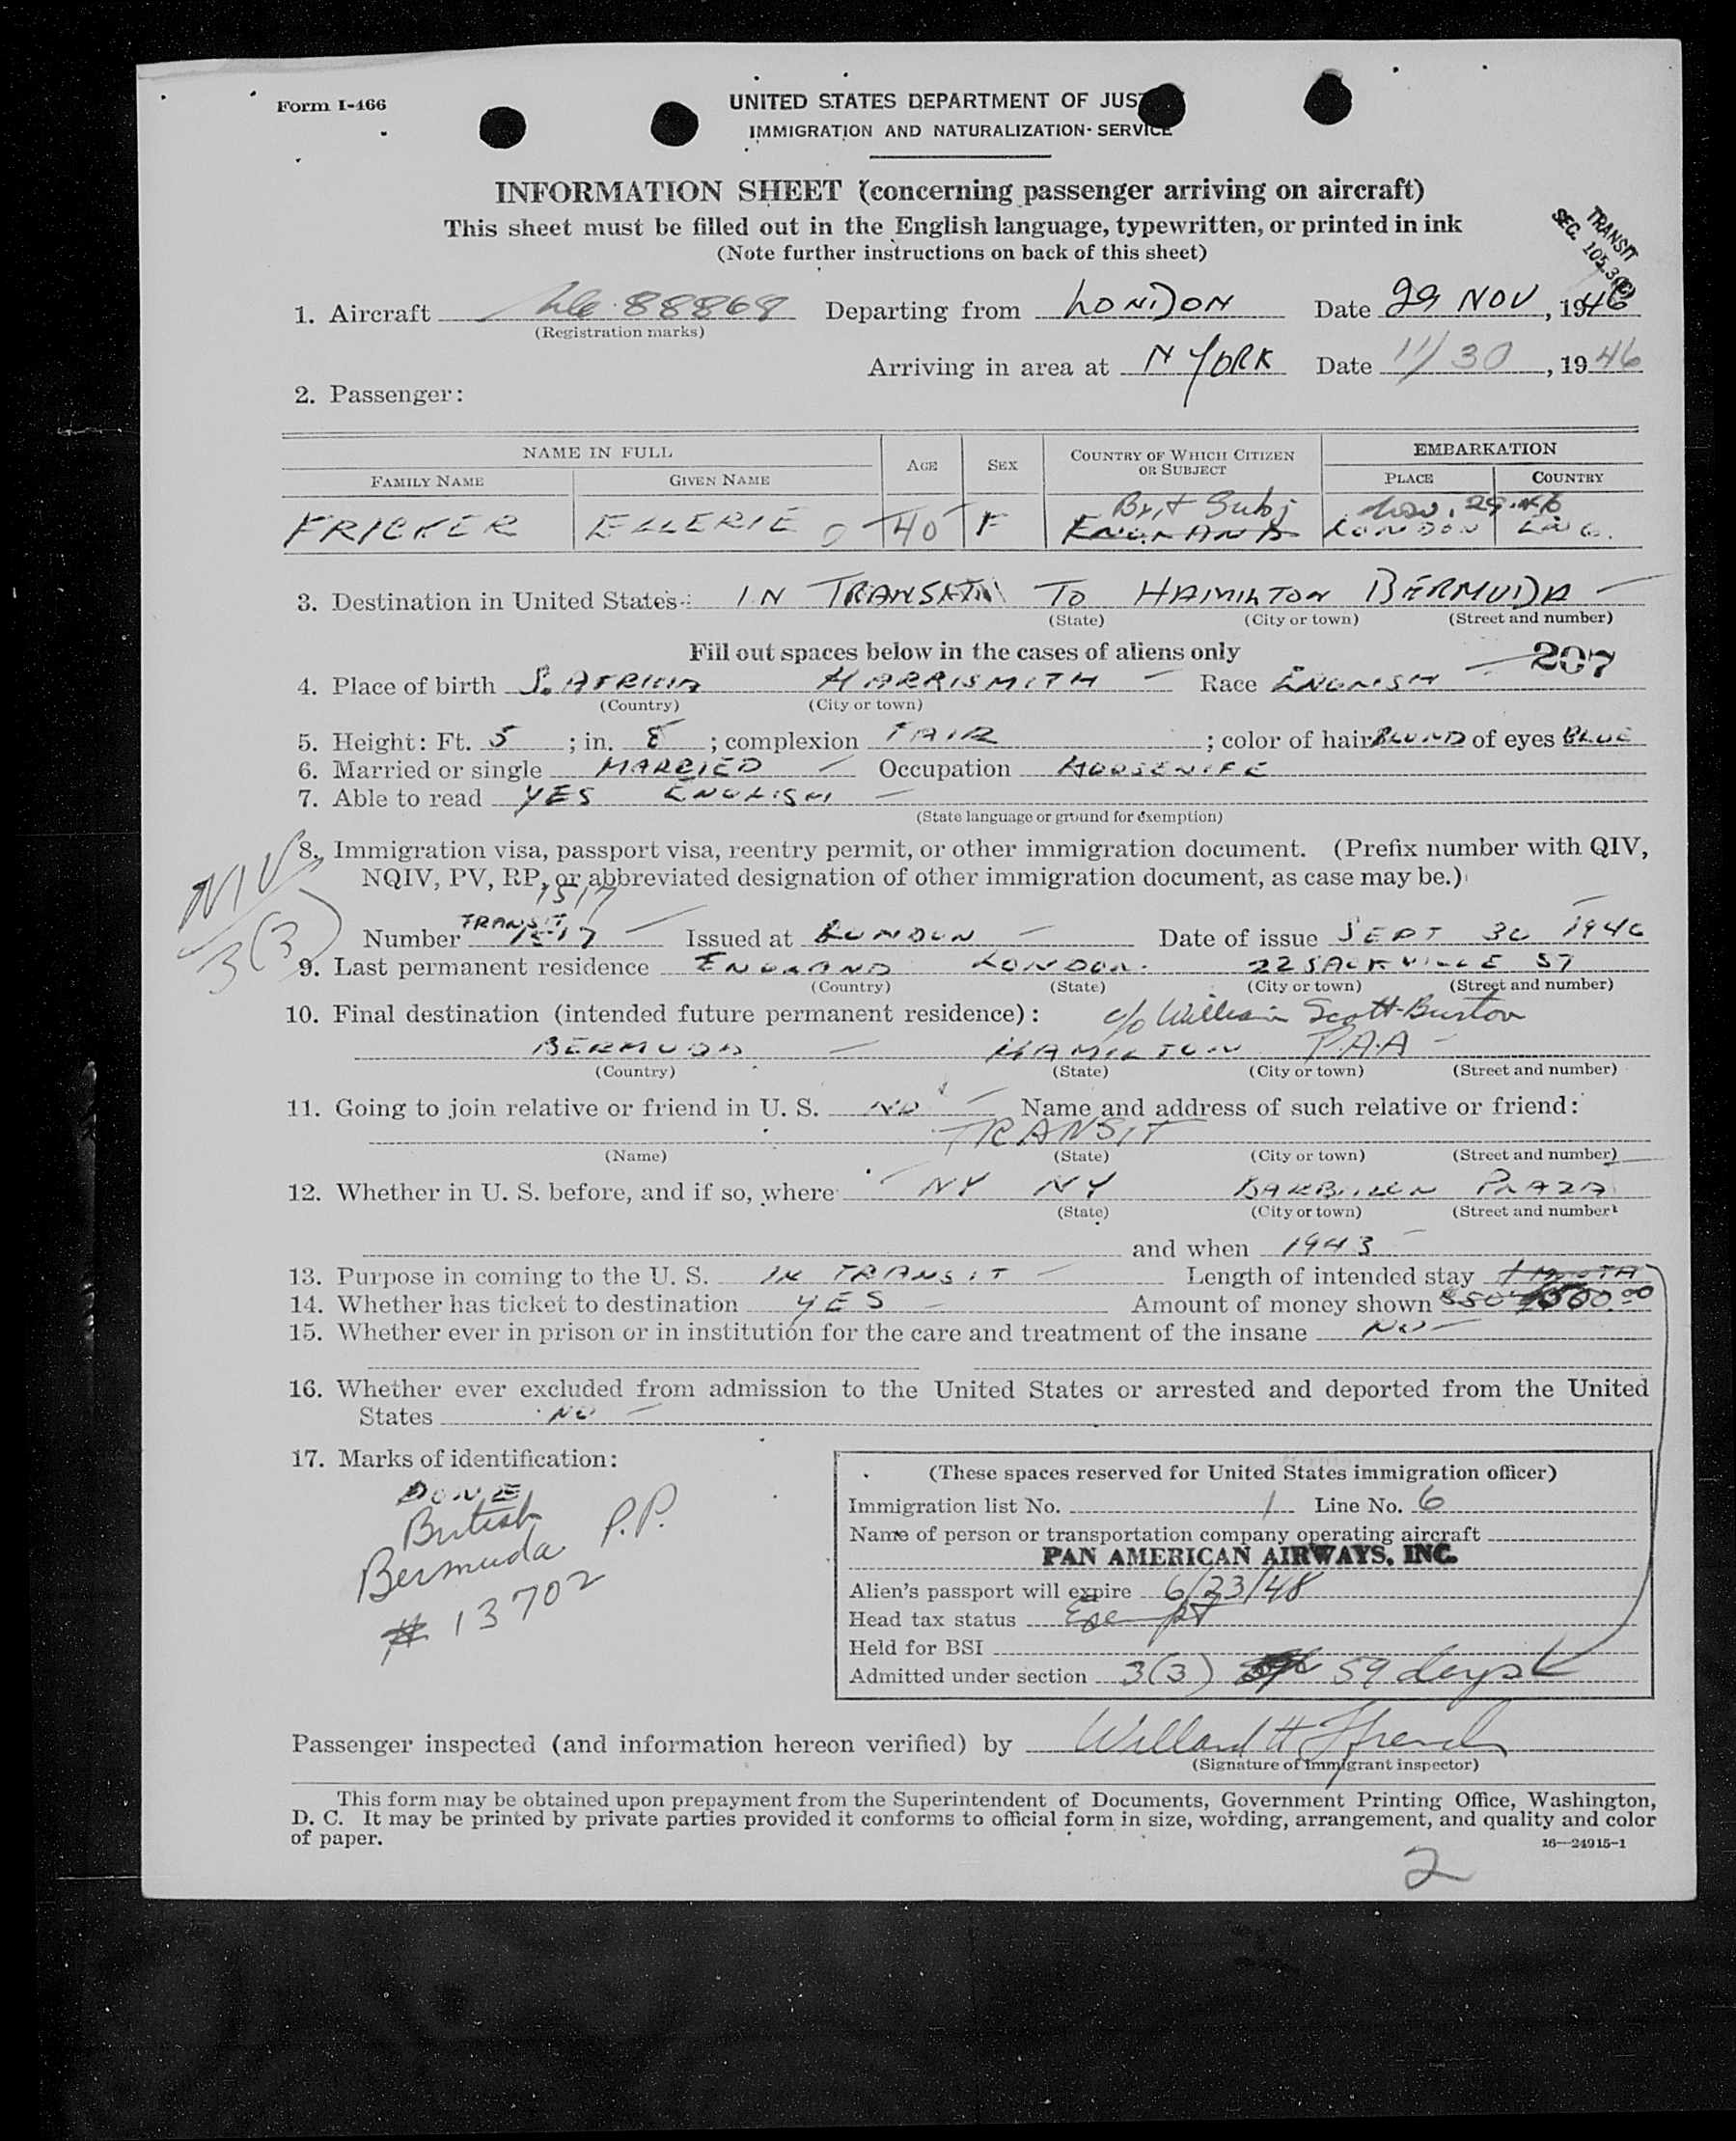 Form I-466
UNITED STATES DEPARTMENT OF JUST
IMMIGRATION AND NATURALIZATION SERVICE
INFORMATION SHEET (concerning passenger arriving on aircraft)
This sheet must be filled out in the English language, typewritten, or printed in ink
(Note further instructions on back of this sheet)
TRANSIT
SEC. 105.3(C)
1. Aircraft 88868 Departing from LONDON Date 29 NOV, 1946
(Registration marks)
Arriving in area at N YORK Date 11/30, 1946
2. Passenger:
NAME IN FULL AGE SEX COUNTRY OF WHICH CITIZEN OR SUBJECT EMBARKATION
FAMILY NAME GIVEN NAME PLACE COUNTRY
Brit Subj Nov. 29. 46
FRICKER ELLERIE 40 F ENGLAND LONDON ENG.
3. Destination in United States: IN TRANSIT TO HAMILTON BERMUDA
(State) (City or town) (Street and number)
Fill out spaces below in the cases of aliens only
207
4. Place of birth S. AFRICA HARRISMITH Race ENGLISH
(Country) (City or town)
5. Height: Ft. 5; in. 8; complexion FAIR; color of hair BLOND of eyes BLUE
6. Married or single MARRIED Occupation HOUSEWIFE
7. Able to read YES ENGLISH
(State language or ground for exemption)
NIV
3(3)
8. Immigration visa, passport visa, reentry permit, or other immigration document. (Prefix number with QIV,
NQIV, PV, RP, or abbreviated designation of other immigration document, as case may be.)
1517
Number TRANSIT 1517 Issued at LONDON Date of issue SEPT 30 1946
9. Last permanent residence ENGLAND LONDON. 22 SACKVILLE ST
(Country) (State) (City or town) (Street and number)
10. Final destination (intended future permanent residence): c/o William Scott-Burton
BERMUDA HAMILTON P.A.A
(Country) (State) (City or town) (Street and number)
11. Going to join relative or friend in U. S. NO Name and address of such relative or friend:
TRANSIT
(Name) (State) (City or town) (Street and number)
12. Whether in U. S. before, and if so, where NY NY BARBIZON PLAZA
(State) (City or town) (Street and number)
and when 1943
13. Purpose in coming to the U. S. IN TRANSIT Length of intended stay 1 MONTH
14. Whether has ticket to destination YES Amount of money shown $50 500.00
15. Whether ever in prison or in institution for the care and treatment of the insane NO
16. Whether ever excluded from admission to the United States or arrested and deported from the United
States NO
17. Marks of identification:
NONE
British
Bermuda P.P.
# 13702
(These spaces reserved for United States immigration officer)
Immigration list No. 1 Line No. 6
Name of person or transportation company operating aircraft
PAN AMERICAN AIRWAYS, INC.
Alien's passport will expire 6/23/48
Head tax status Exempt
Held for BSI
Admitted under section 3(3) 59 days
Passenger inspected (and information hereon verified) by Willard H Ffrench
(Signature of immigrant inspector)
This form may be obtained upon prepayment from the Superintendent of Documents, Government Printing Office, Washington,
D. C. It may be printed by private parties provided it conforms to official form in size, wording, arrangement, and quality and color
of paper.
16—24915-1
2